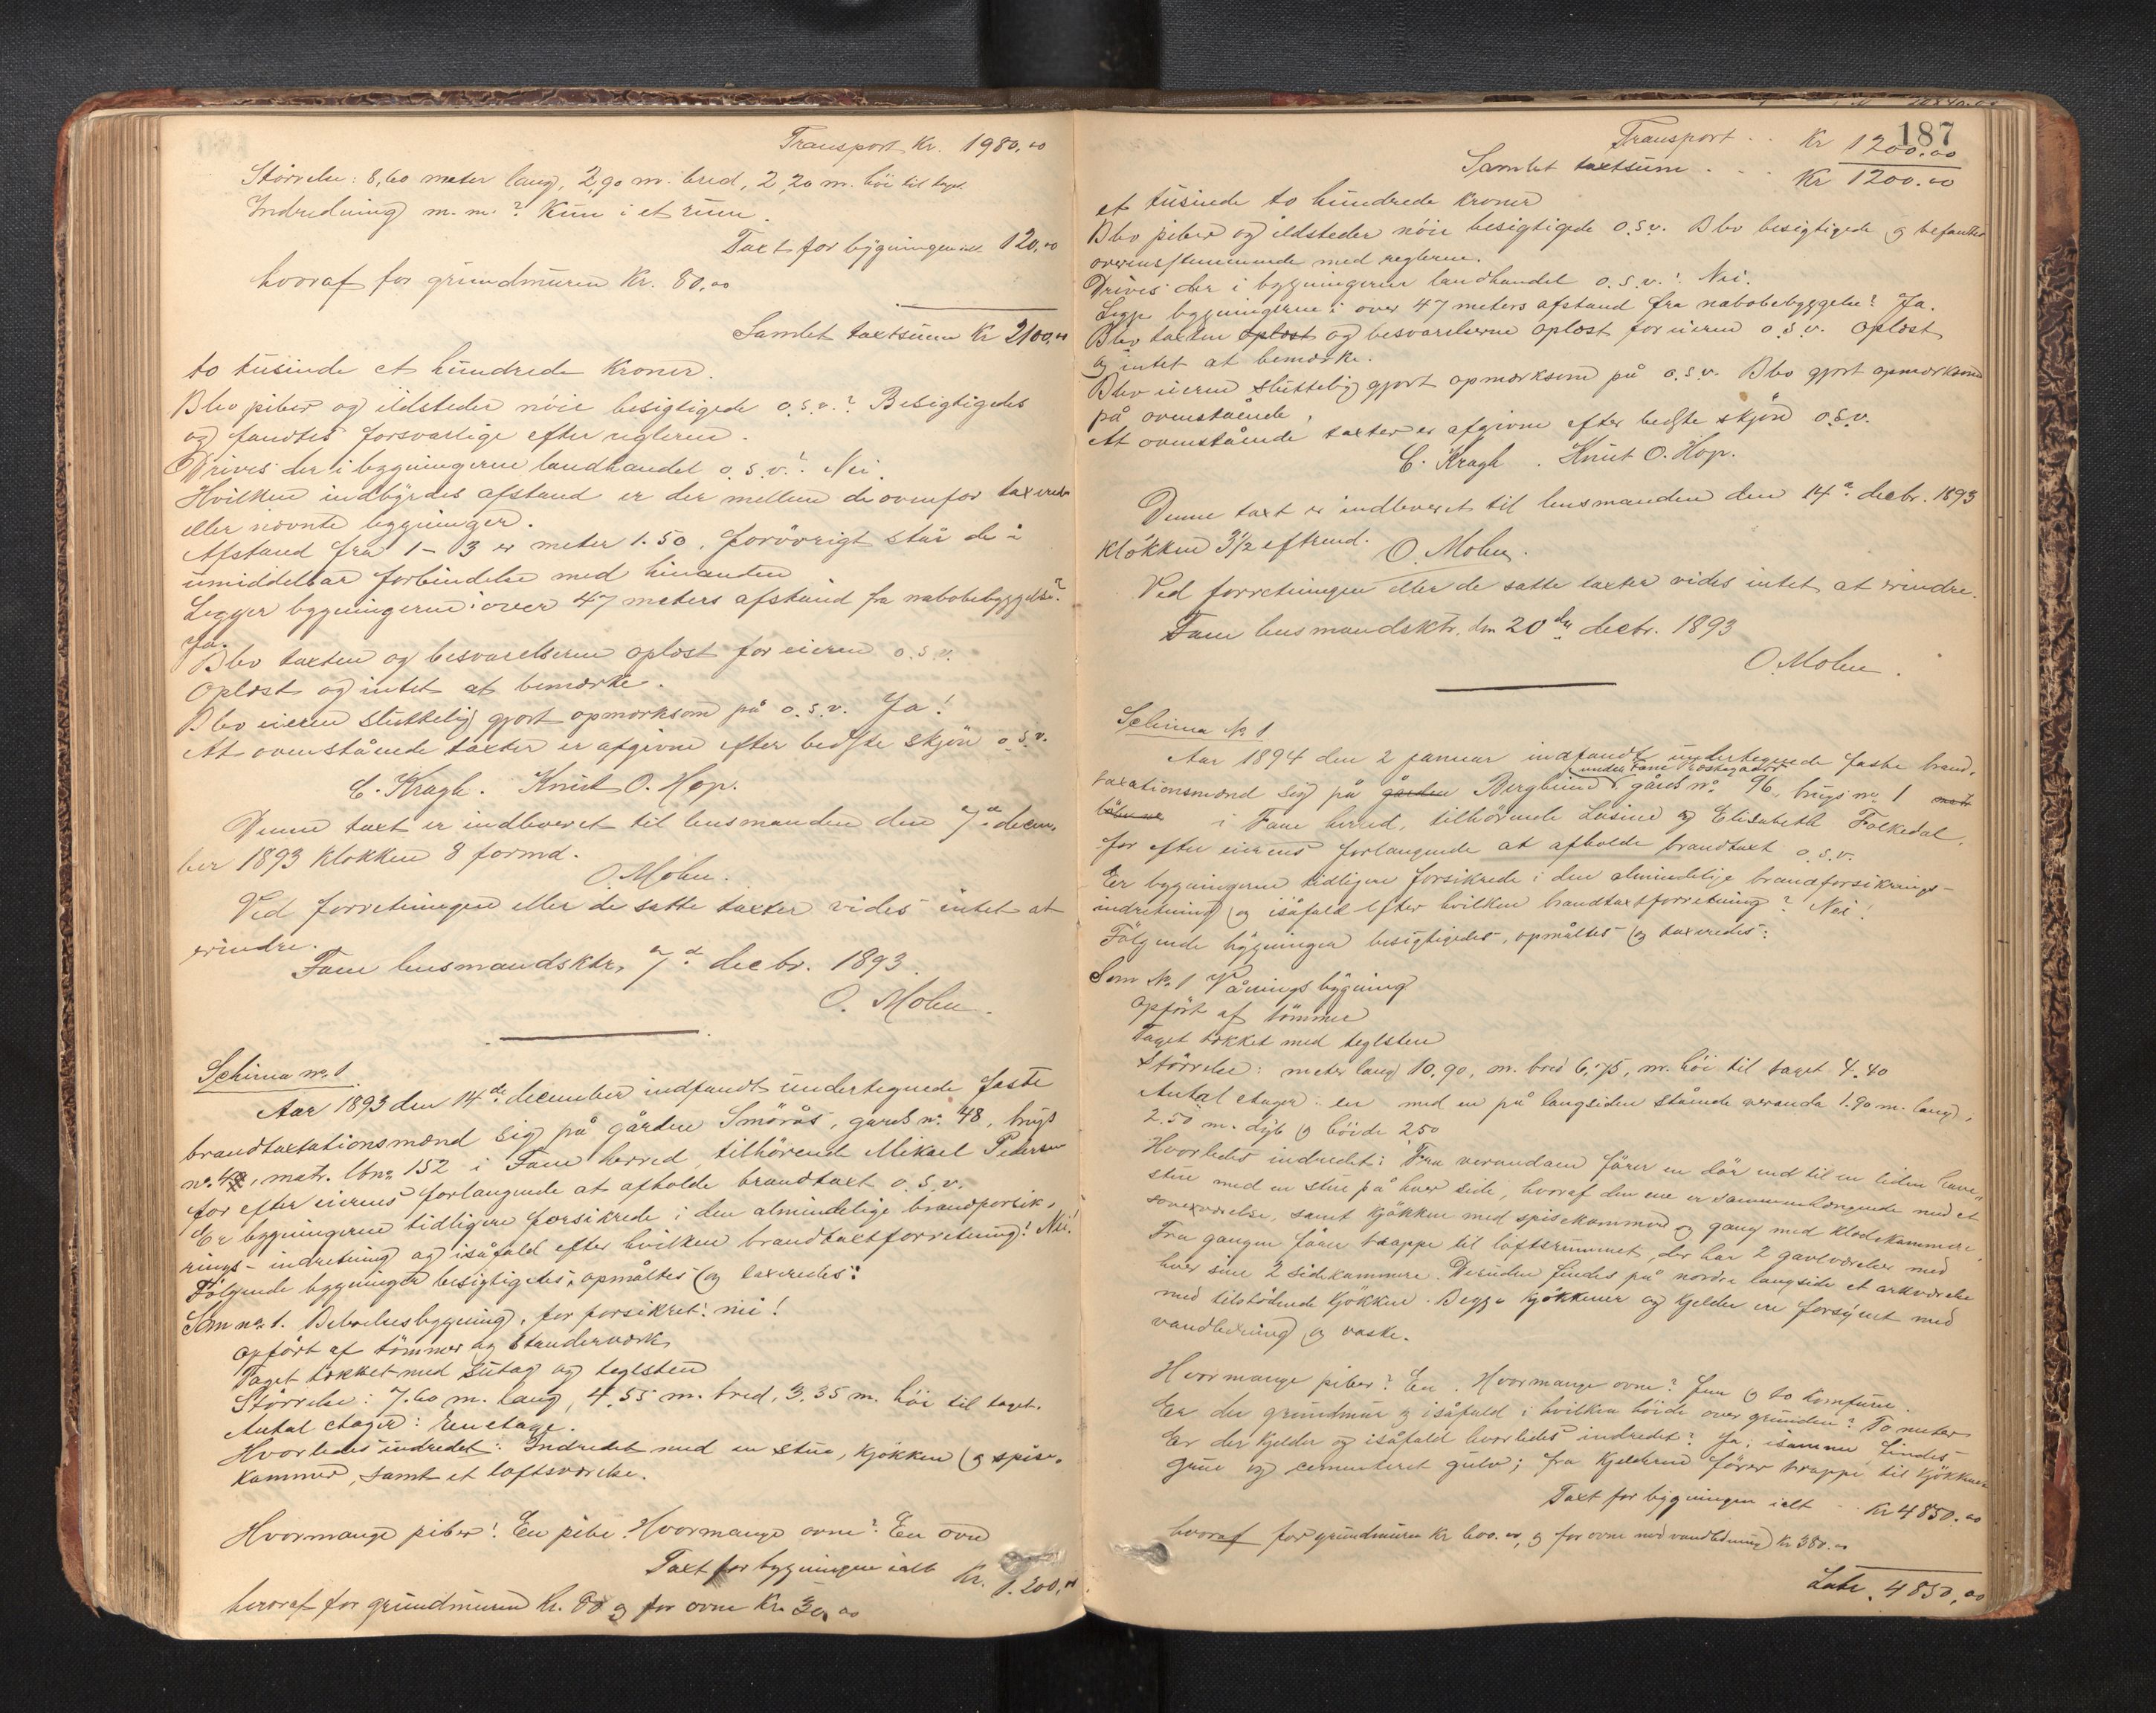 Transport Kr. 1980,00
Störrelse: 8,60 meter lang, 2,90 m. bred, 2,20 m. höi til taget.
Indredning m.m.? Kun i et rum.
Taxt for bygningen ialt 120,00
hvoraf for grundmuren Kr. 80,00
Samlet taxtsum Kr 2100,00
to tusinde et hundrede Kroner.
Blev piber og ildsteder nöie besigtigede o.s.v.? Besigtigedes
og fandtes forsvarlige efter reglerne.
Drives der i bygningerne landhandel o.s.v.? Nei
Hvilken indbyrdes afstand er der mellem de ovenfor taxerede
eller nævnte bygninger.
Afstand fra 1 - 3 er meter 1.50, forövrigt står de i
umiddelbar forbindelse med hinanden
Ligger bygningerne i over 47 meters afstand fra nabobebyggelse?
Ja.
Blev taxten og besvarelserne oplæst for eieren o.s.v.
Oplæst og intet at bemærke.
Blev eieren sluttelig gjort opmærksom på o.s.v. Ja!
At ovenstående taxter er afgivne efter bedste skjön o.s.v.
C. Kragh. Knut O. Hop.
Denne taxt er indleveret til lensmanden den 7de decem-
ber 1893 klokken 8 formd.
O. Mohn.
Ved forretningen eller de satte taxter vides intet at
erindre.
Fane lensmandsktr, 7de decbr. 1893.
O. Mohn.
Schima no. 1.
Aar 1893 den 14de december indfandt undertegnede faste
brandtaxtationsmænd sig på gården Smörås, gards no. 48, brugs
no. 4, matr. lbno 152 i Fane herred, tilhörende Mikael Pedersen
for efter eierens forlangende at afholde brandtaxt o.s.v.
Er bygningerne tidligere forsikrede i den almindelige brandforsik-
rings-indretning og isåfald efter hvilken brandtaxtforretning? Nei!
Fölgende bygninger besigtigedes, opmåltes og taxeredes:
Som no. 1. Beboelsesbygning, för forsikret: nei!
opfört af tömmer og stænderværk
Taget tækket med sutag og teglsten
Störrelse: 7.60 m. lang, 4.55 m. bred, 3.35 m. höi til taget.
Antal etager: En etage.
Hvorledes indredet: Indredet med en stue, kjökken og spise-
kammer, samt et loftsværelse.
Hvormange piber? En pibe. Hvormange ovne? En ovn
Taxt for bygningen ialt Kr. 1.200,00
hvoraf for grundmuren Kr. 80 og for ovne Kr. 30,00
187
Transport . . Kr 1200.00
Samlet taxtsum . . . Kr 1200.00
et tusinde to hundrede Kroner
Blev piber og ildsteder nöie besigtigede o.s.v. Blev besigtigede og befandtes
overensstemmende med reglerne.
Drives der i bygningerne landhandel o.s.v.? Nei.
Ligge bygningerne i over 47 meters afstand fra nabobebyggelse? Ja.
Blev taxten oplæst og besvarelserne oplæst for eieren o.s.v. oplæst
og intet at bemærke.
Blev eieren sluttelig gjort opmærksom på o.s.v. Blev gjort opmærksom
på ovenstående.
At ovenstående taxter er afgivne efter bedste skjön o.s.v.
C. Kragh. Knut O. Hop.
Denne taxt er indleveret til lensmanden den 14de decbr. 1893
klökken 3 1/2 eftrmd. O. Mohn.
Ved forretningen eller de satte taxter vides intet at erindre.
Fane lensmandsktr. den 20de decbr. 1893
O. Mohn.
Schima No 1
Aar 1894 den 2 januar indfandt undertegnede faste brand-
under Fane Præstegaard
taxationsmænd sig på gården Berglund gårds no. 96, brugs no. 1 matr.
i Fane herred, tilhörende Lusine og Elisabeth Folkedal,
for efter eierens forlangende at afholde brandtaxt o.s.v.
Er bygningerne tidligere forsikrede i den almindelige brandforsikrings-
indretning og isåfald efter hvilken brandtaxtforretning? Nei!
Fölgende bygninger besigtigedes, opmåltes og taxeredes:
Som No. 1 Våningsbygning
opfört af tömmer
Taget tækket med teglsten
Störrelse: meter lang 10,90, m. bred 6,75, m. höi til taget 4.40
Antal etager: en med en på langsiden stående veranda 1.90 m. lang,
2.50 m. dyb og höide 250
Hvorledes indredet: Fra verandaen förer en dör ind til en liden have-
stue med en stue på hver side, hvoraf den ene er sammenhængende med et
soveværelse, samt kjökken med spisekammer og gang med klædekammer.
Fra gangen förer trappe til loftsrummet, der har 2 gavlværelser med
hver sine 2 sidekammere. Desuden findes på nordre langside et arkværelse
med tilstödende kjökken. Begge kjökkener og kjelder er forsynet med
vandledning og vaske.
Hvormange piber? En. Hvormange ovne? Fem og to komfurer.
Er der grundmur og isåfald i hvilken höide over grunden? To meter
Er der kjelder og isåfald hvorledes indredet? Ja; isamme findes
grue og cementeret gulv; fra kjelderen förer trappe til kjökkenet
Taxt for bygningen ialt . . Kr 4850.00
hvoraf for grundmuren Kr 600.00, og for ovne med vandledning Kr 380.00
Latr. 4850,00